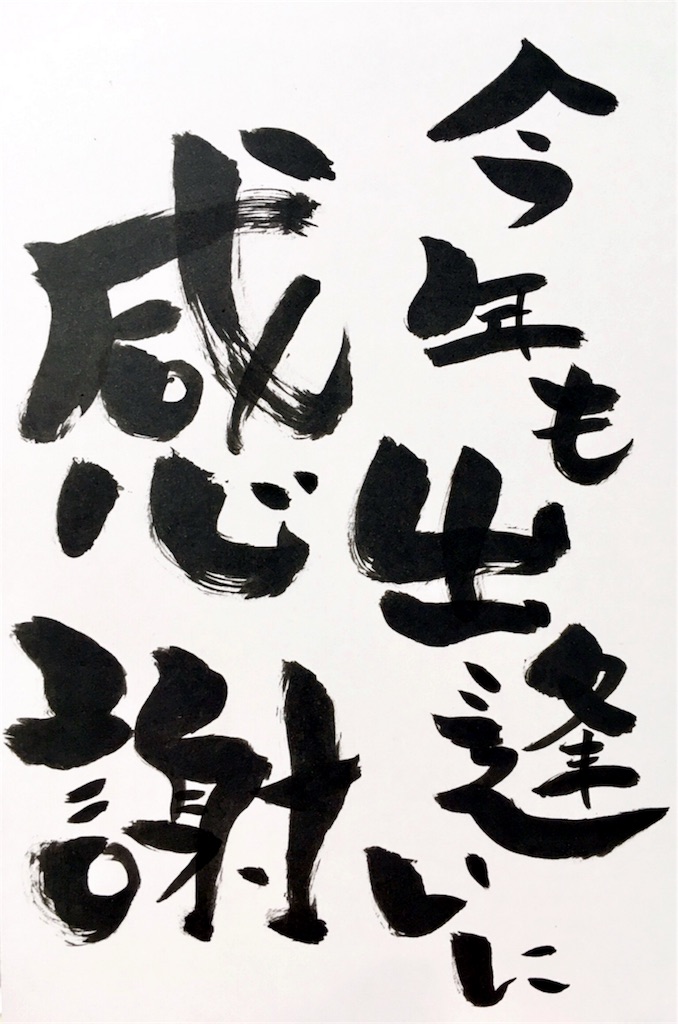 今年も出逢いに
感謝